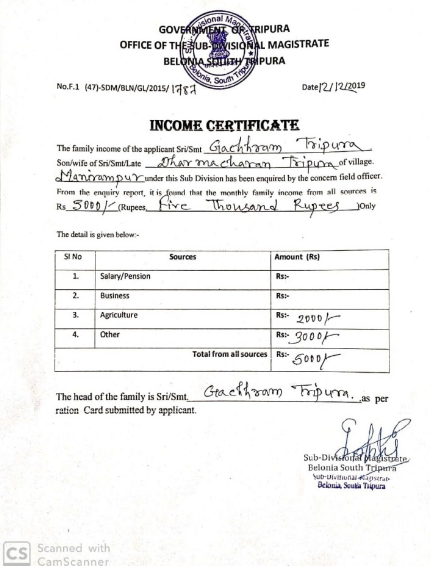 GOVERNMENT OF TRIPURA
OFFICE OF THE SUB-DIVISIONAL MAGISTRATE
BELONIA SOUTH TRIPURA
No.F.1 (47)-SDM/BLN/GL/2015/ 1787 Date 12/12/2019
INCOME CERTIFICATE
The family income of the applicant Sri/Smt Gachhram Tripura
Son/wife of Sri/Smt/Late Dharmacharan Tripura of village.
Manirampur under this Sub Division has been enquired by the concern field officer.
From the enquiry report, it is found that the monthly family income from all sources is
Rs 5000/- (Rupees, Five Thousand Rupees )Only
The detail is given below:-
Sl No Sources Amount (Rs)
1. Salary/Pension Rs:-
2. Business Rs:-
3. Agriculture Rs:- 2000/-
4. Other Rs:- 3000/-
Total from all sources Rs:- 5000/-
The head of the family is Sri/Smt. Gachhram Tripura. ,as per
ration Card submitted by applicant.
Sub-Divisional Magistrate
Belonia South Tripura
Sub-Divisional Magistrate
Belonia, South Tripura
CS Scanned with
CamScanner